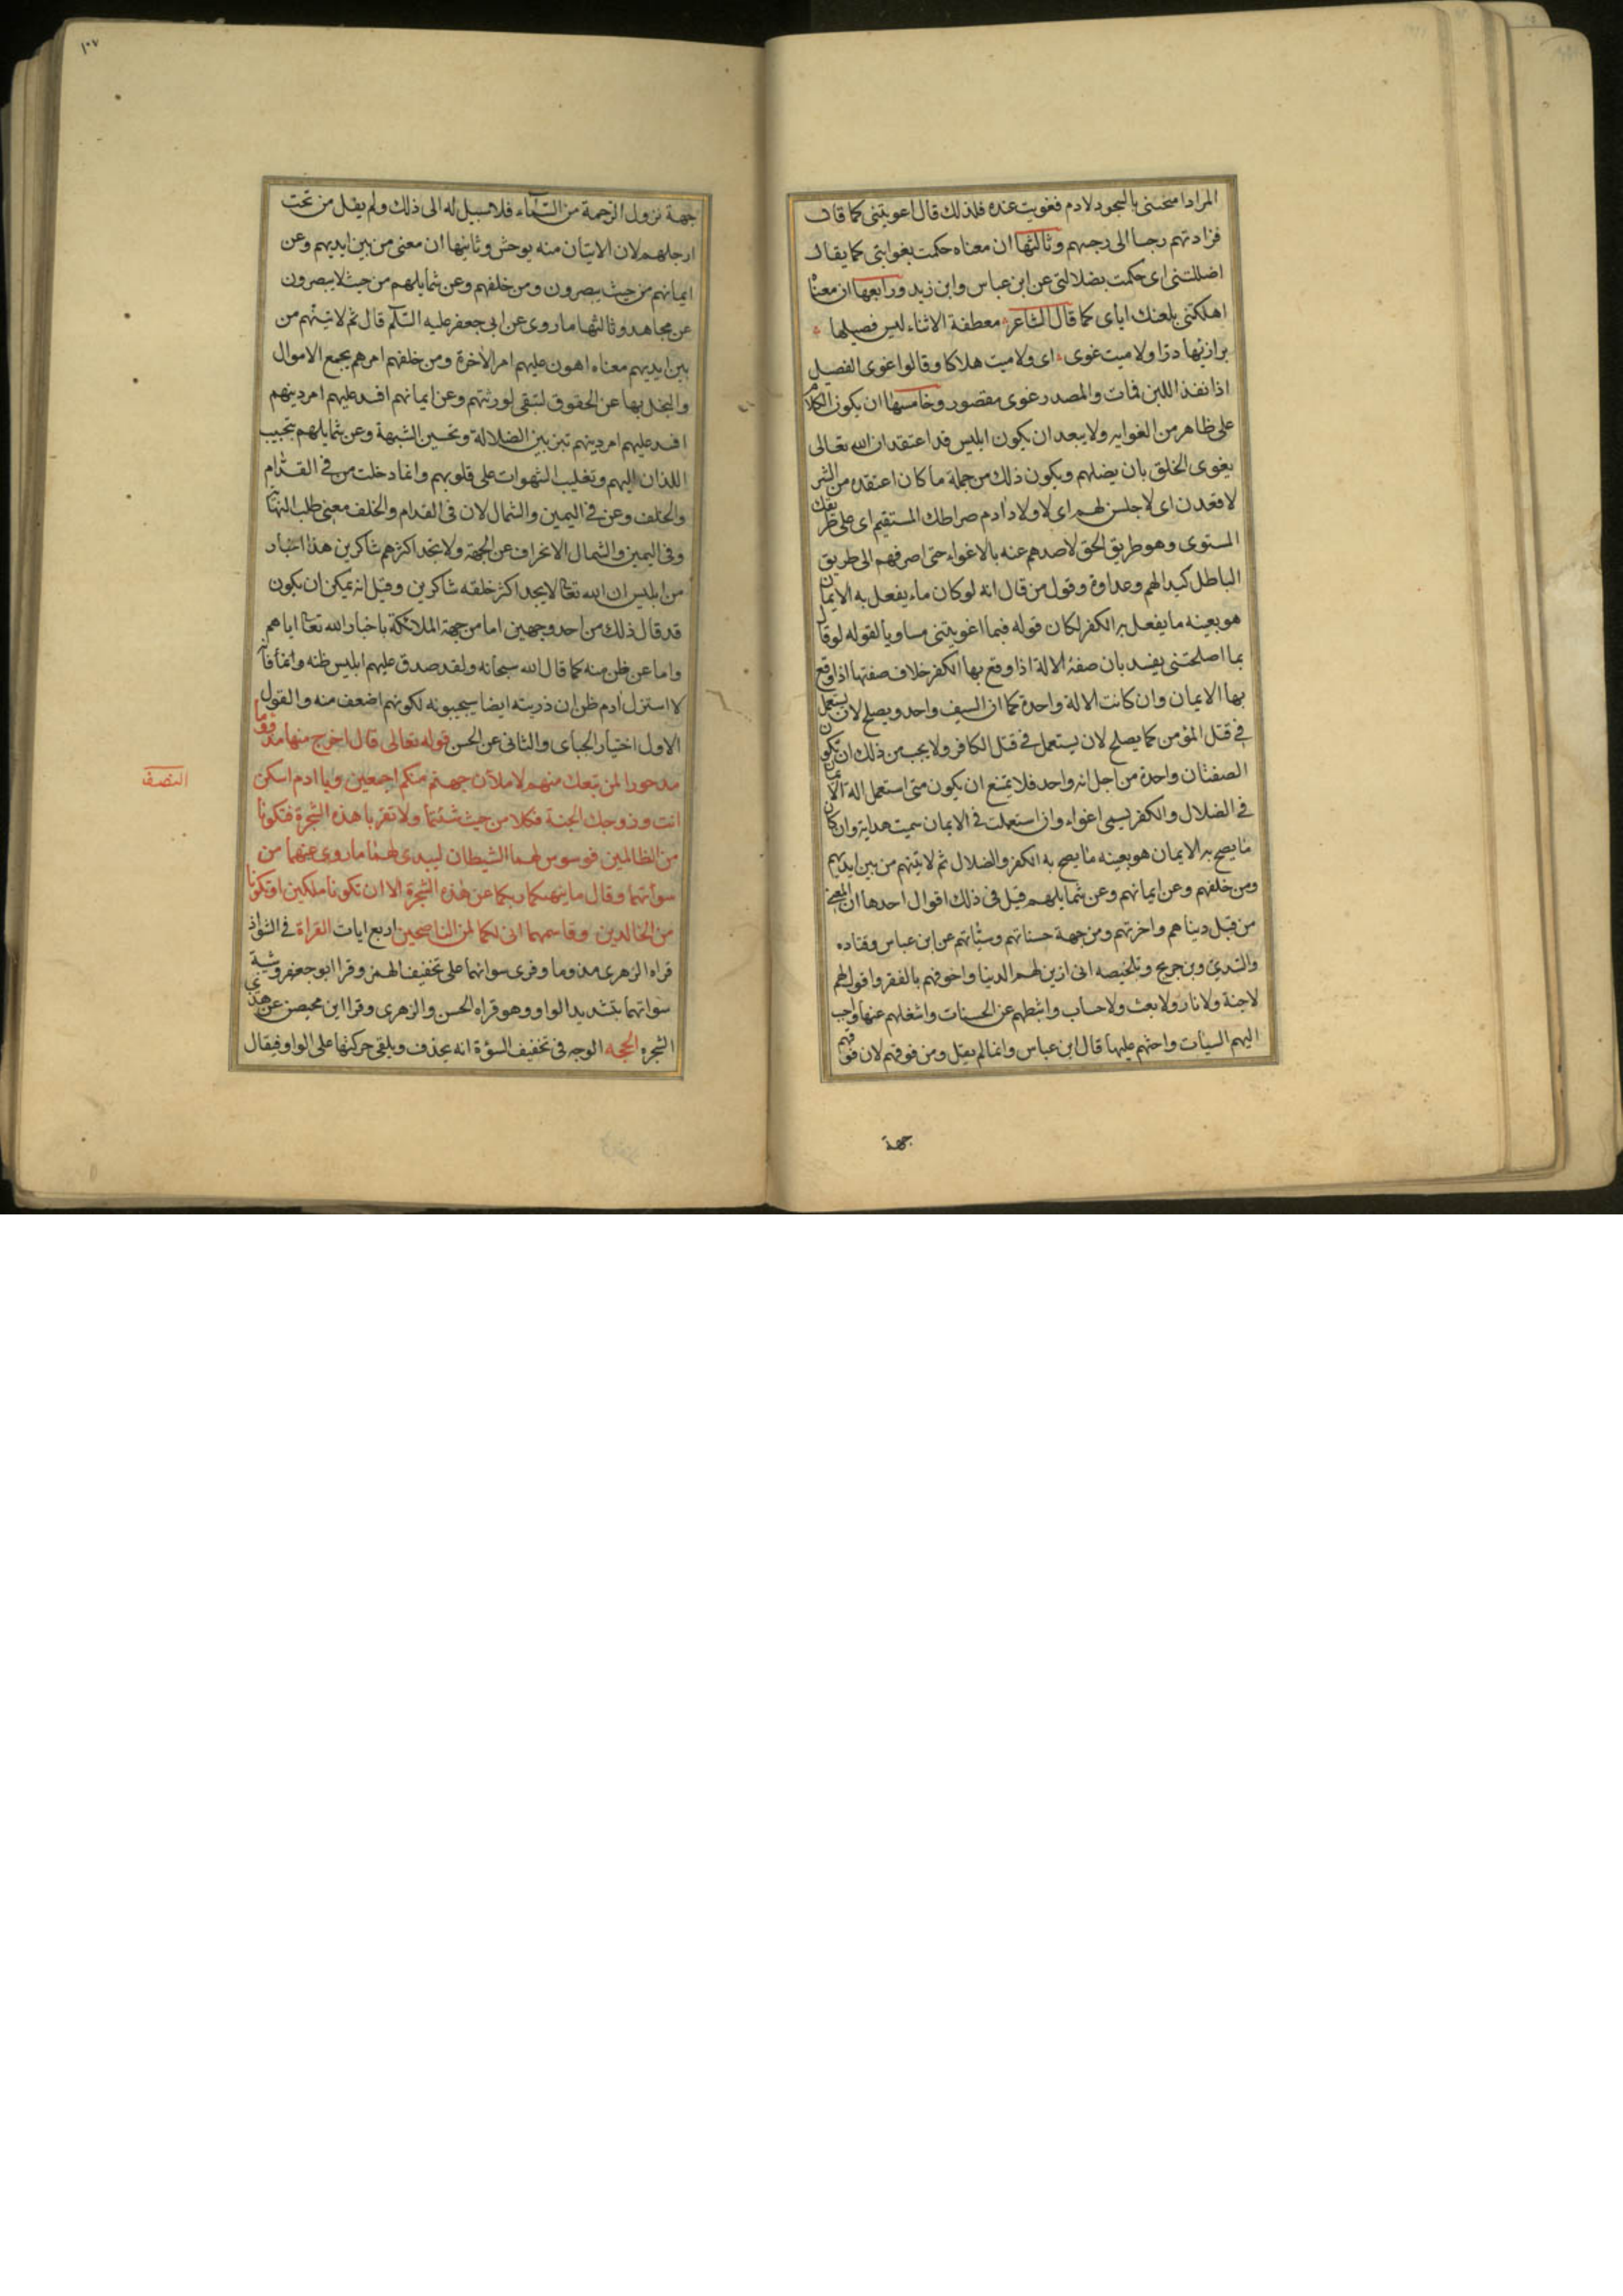 المراد امتحنتنى بالسجود لادم فغويت عنده فلذلك قال اغويتنى كما قال
فزادتهم رجسا الى رجسهم وثالثها ان معناه حكمت بغوايتى كما يقال
اضللتنى اى حكمت بضلالتى عن ابن عباس وابن زيد ورابعها ان معناه
اهلكتنى بلعنك اياى كما قال الشاعر معطفة الاثناء ليس فصيلها
برازئها درا ولا ميت غوى اى ولا ميت هلاكا وقالوا غوى الفصيل
اذا نفذ اللبن فمات والمصدر غوى مقصور وخامسها ان يكون الكلام
على ظاهر من الغوايه ولا يبعد ان يكون ابليس قد اعتقد ان الله تعالى
يغوى الخلق بان يضلهم ويكون ذلك من جملة ما كان اعتقده من الشر
لاقعدن اى لاجلسن لهم اى لاولاد ادم صراطك المستقيم اى على طريقك
المستوى وهو طريق الحق لاصدهم عنه بالاغواء حتى اصرفهم الى طريق
الباطل كيدا لهم وعداوة وقول من قال انه لو كان ماء يفعل به الايمان
هو بعينه ما يفعل به الكفر لكان قوله فبما اغويتنى مساويا لقوله لو قال
بما اصلحتنى يفسد بان صفة الالة اذا وقع بها الكفر خلاف صفتها اذا وقع
بها الايمان وان كانت الالة واحدة كما ان السيف واحد ويصلح لان يستعمل
فى قتل المؤمن كما يصلح لان يستعمل فى قتل الكافر ولا يجب من ذلك ان تكون
الصفتان واحدة من اجل انه واحد فلا يمتنع ان يكون متى استعمل الة الايمان
فى الضلال والكفر يسمى اغواء وان استعملت فى الايمان سميت هداية وان كان
ما يصح به الايمان هو بعينه ما يصح به الكفر والضلال ثم لاتينهم من بين ايديهم
ومن خلفهم وعن ايمانهم وعن شمايلهم قيل فى ذلك اقوال احدها ان المعنى
من قبل دنياهم واخرتهم ومن جهة حسناتهم وسيئاتهم عن ابن عباس وقتاده
والسدى وبن جريج وتلخيصه انى ازين لهم الدنيا واخوفهم بالفقر واقول لهم
لا جنة ولا نار ولا بعث ولا حساب واثبطهم عن الحسنات واشغلهم عنها واحب
اليهم السيات واحثهم عليها قال ابن عباس وانما لم يقل ومن فوقهم لان فوقهم
جهة
١٠٧
جهة نزول الرحمة من السماء فلا سبيل له الى ذلك ولم يقل من تحت
ارجلهم لان الاتيان منه يوحش وثانيها ان معنى من بين ايديهم وعن
ايمانهم من حيث يبصرون ومن خلفهم وعن شمايلهم من حيث لا يبصرون
عن مجاهد وثالثها ما روى عن ابى جعفر عليه السلم قال ثم لاتينهم من
بين ايديهم معناه اهون عليهم امر الاخرة ومن خلفهم امرهم بجمع الاموال
والبخل بها عن الحقوق لتبقى لورثتهم وعن ايمانهم افسد عليهم امر دينهم
افسد عليهم امر دينهم بتزيين الضلالة وتحسين الشبهة وعن شمايلهم بتحبيب
اللذات اليهم وتغليب الشهوات على قلوبهم وانما دخلت من فى القدام
والخلف وعن فى اليمين والشمال لان فى القدام والخلف معنى طلب النهاية
وفى اليمين والشمال الانحراف عن الجهة ولا تجد اكثرهم شاكرين هذا اخبار
من ابليس ان الله تعالى لا يجد اكثر خلقه شاكرين وقيل انه يمكن ان يكون
قد قال ذلك من احد وجهين اما من جهة الملائكة باخبار الله تعالى اياهم
واما عن ظن منه كما قال الله سبحانه ولقد صدق عليهم ابليس ظنه وانما قال
لا استزل ادم ظن ان ذريته ايضا سيجيبونه لكونهم اضعف منه والقول
الاول اختيار الجباى والثانى عن الحسن قوله تعالى قال اخرج منها مذؤوما
النصف
مدحورا لمن تبعك منهم لاملأن جهنم منكم اجمعين ويا ادم اسكن
انت وزوجك الجنة فكلا من حيث شئتما ولا تقربا هذه الشجرة فتكونا
من الظالمين فوسوس لهما الشيطان ليبدى لهما ما روى عنهما من
سوآتهما وقال ما نهيكما ربكما عن هذه الشجرة الا ان تكونا ملكين او تكونا
من الخالدين وقاسمهما انى لكما لمن الناصحين اربع ايات القراة فى الشواذ
قراه الزهرى مذوما وقرى سواتهما على تخفيف الهمز وقرا ابو جعفر وشيبة
سواتهما بتشديد الواو وهو قراه الحسن والزهرى وقرا ابن محيصن عن هذى
الشجره الحجه الوجه فى تخفيف السؤة انه يحذف ويلقى حركتها على الواو فيقال